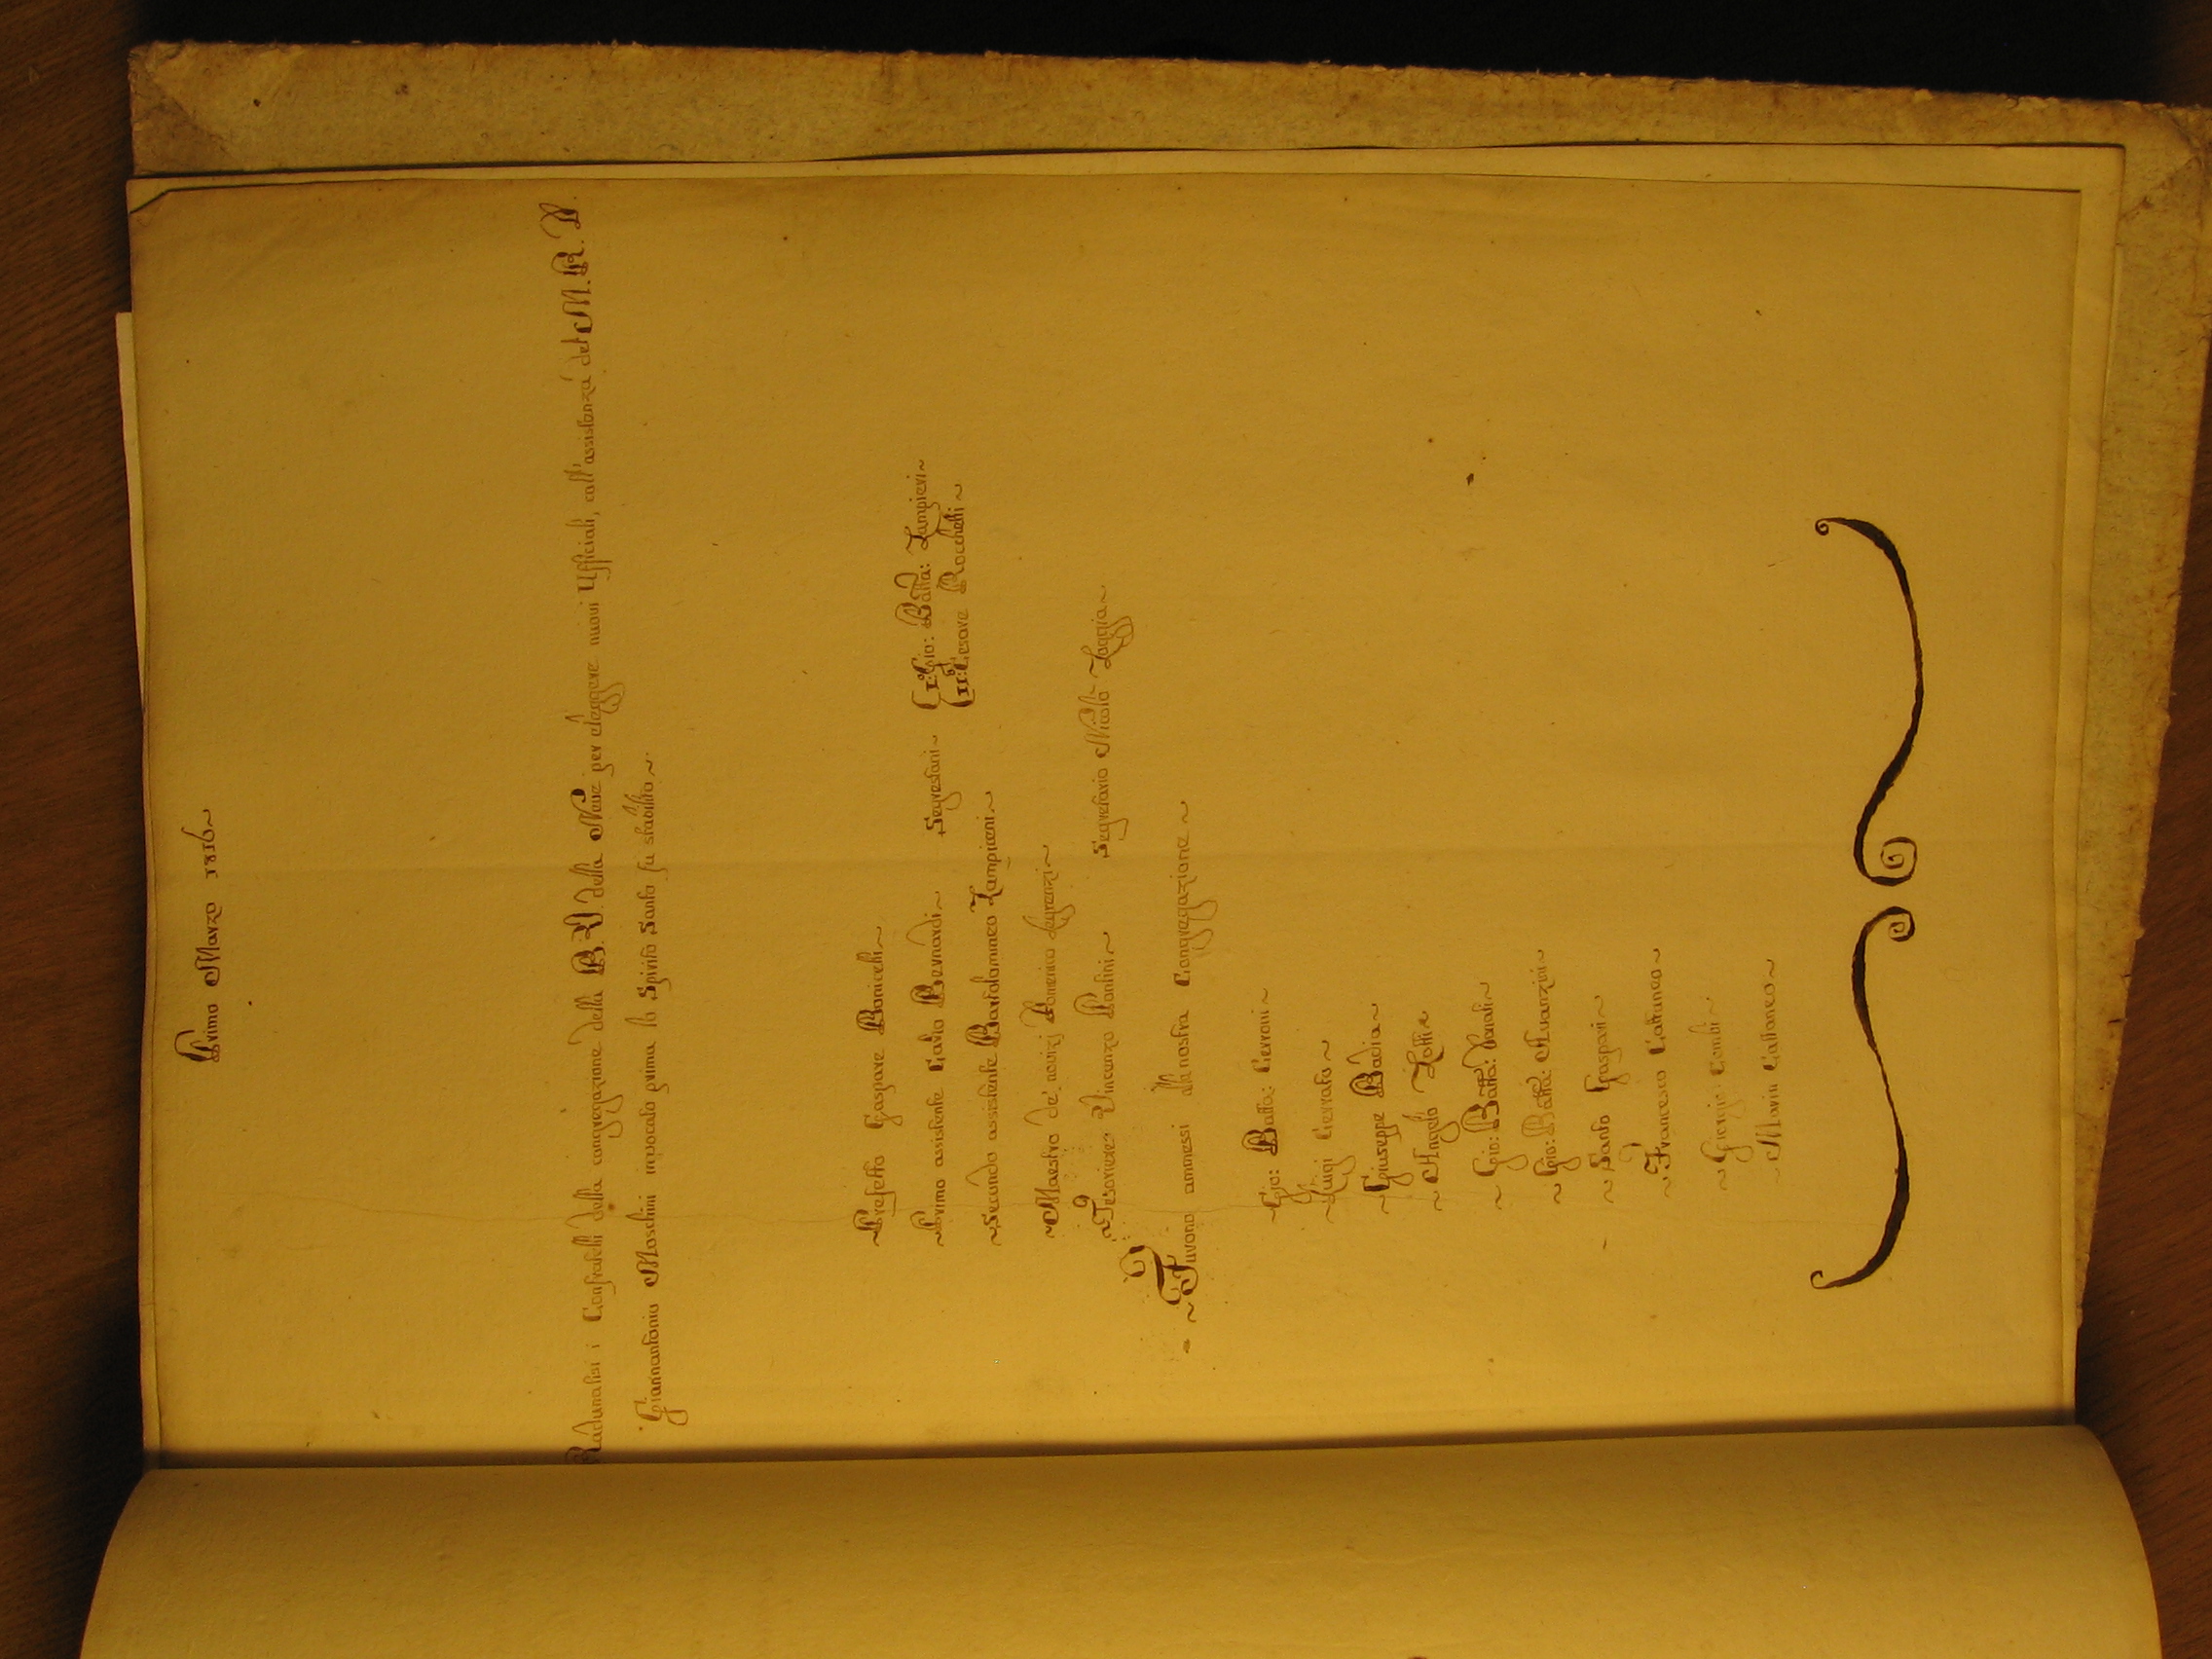 Primo Marzo 1816~
Radunatisi i Confratelli della congregazione della B. V. della Neve per eleggere nuovi Ufficiali, coll'assistenza del M. R. D.
Gianantonio Moschini invocato prima lo Spirito Santo fu stabilito~
~Prefetto Gaspare Bonicelli~
~Primo assistente Carlo Bernardi~ Segrestani~ I:° Gio: Batta: Zampieri~
II:° Cesare Rocchetti~
~Secondo assistente Bartolommeo Zampieri~
~Maestro de' novizj Domenico Legrenzi~
~Tesoriere Vincenzo Pontini~ Segretario Nicolò Zaggia~
~Furono ammessi alla nostra Congregazione~
~Gio: Batta: Cerroni~
~Luigi Cerrato~
~Giuseppe Badia~
~Angelo
~Gio: Batta:
~Gio: Batta: Avanzini~
~Santo Gaspari~
~Francesco Cattaneo~
~Giorgio Combi~
~Marin Cattaneo~